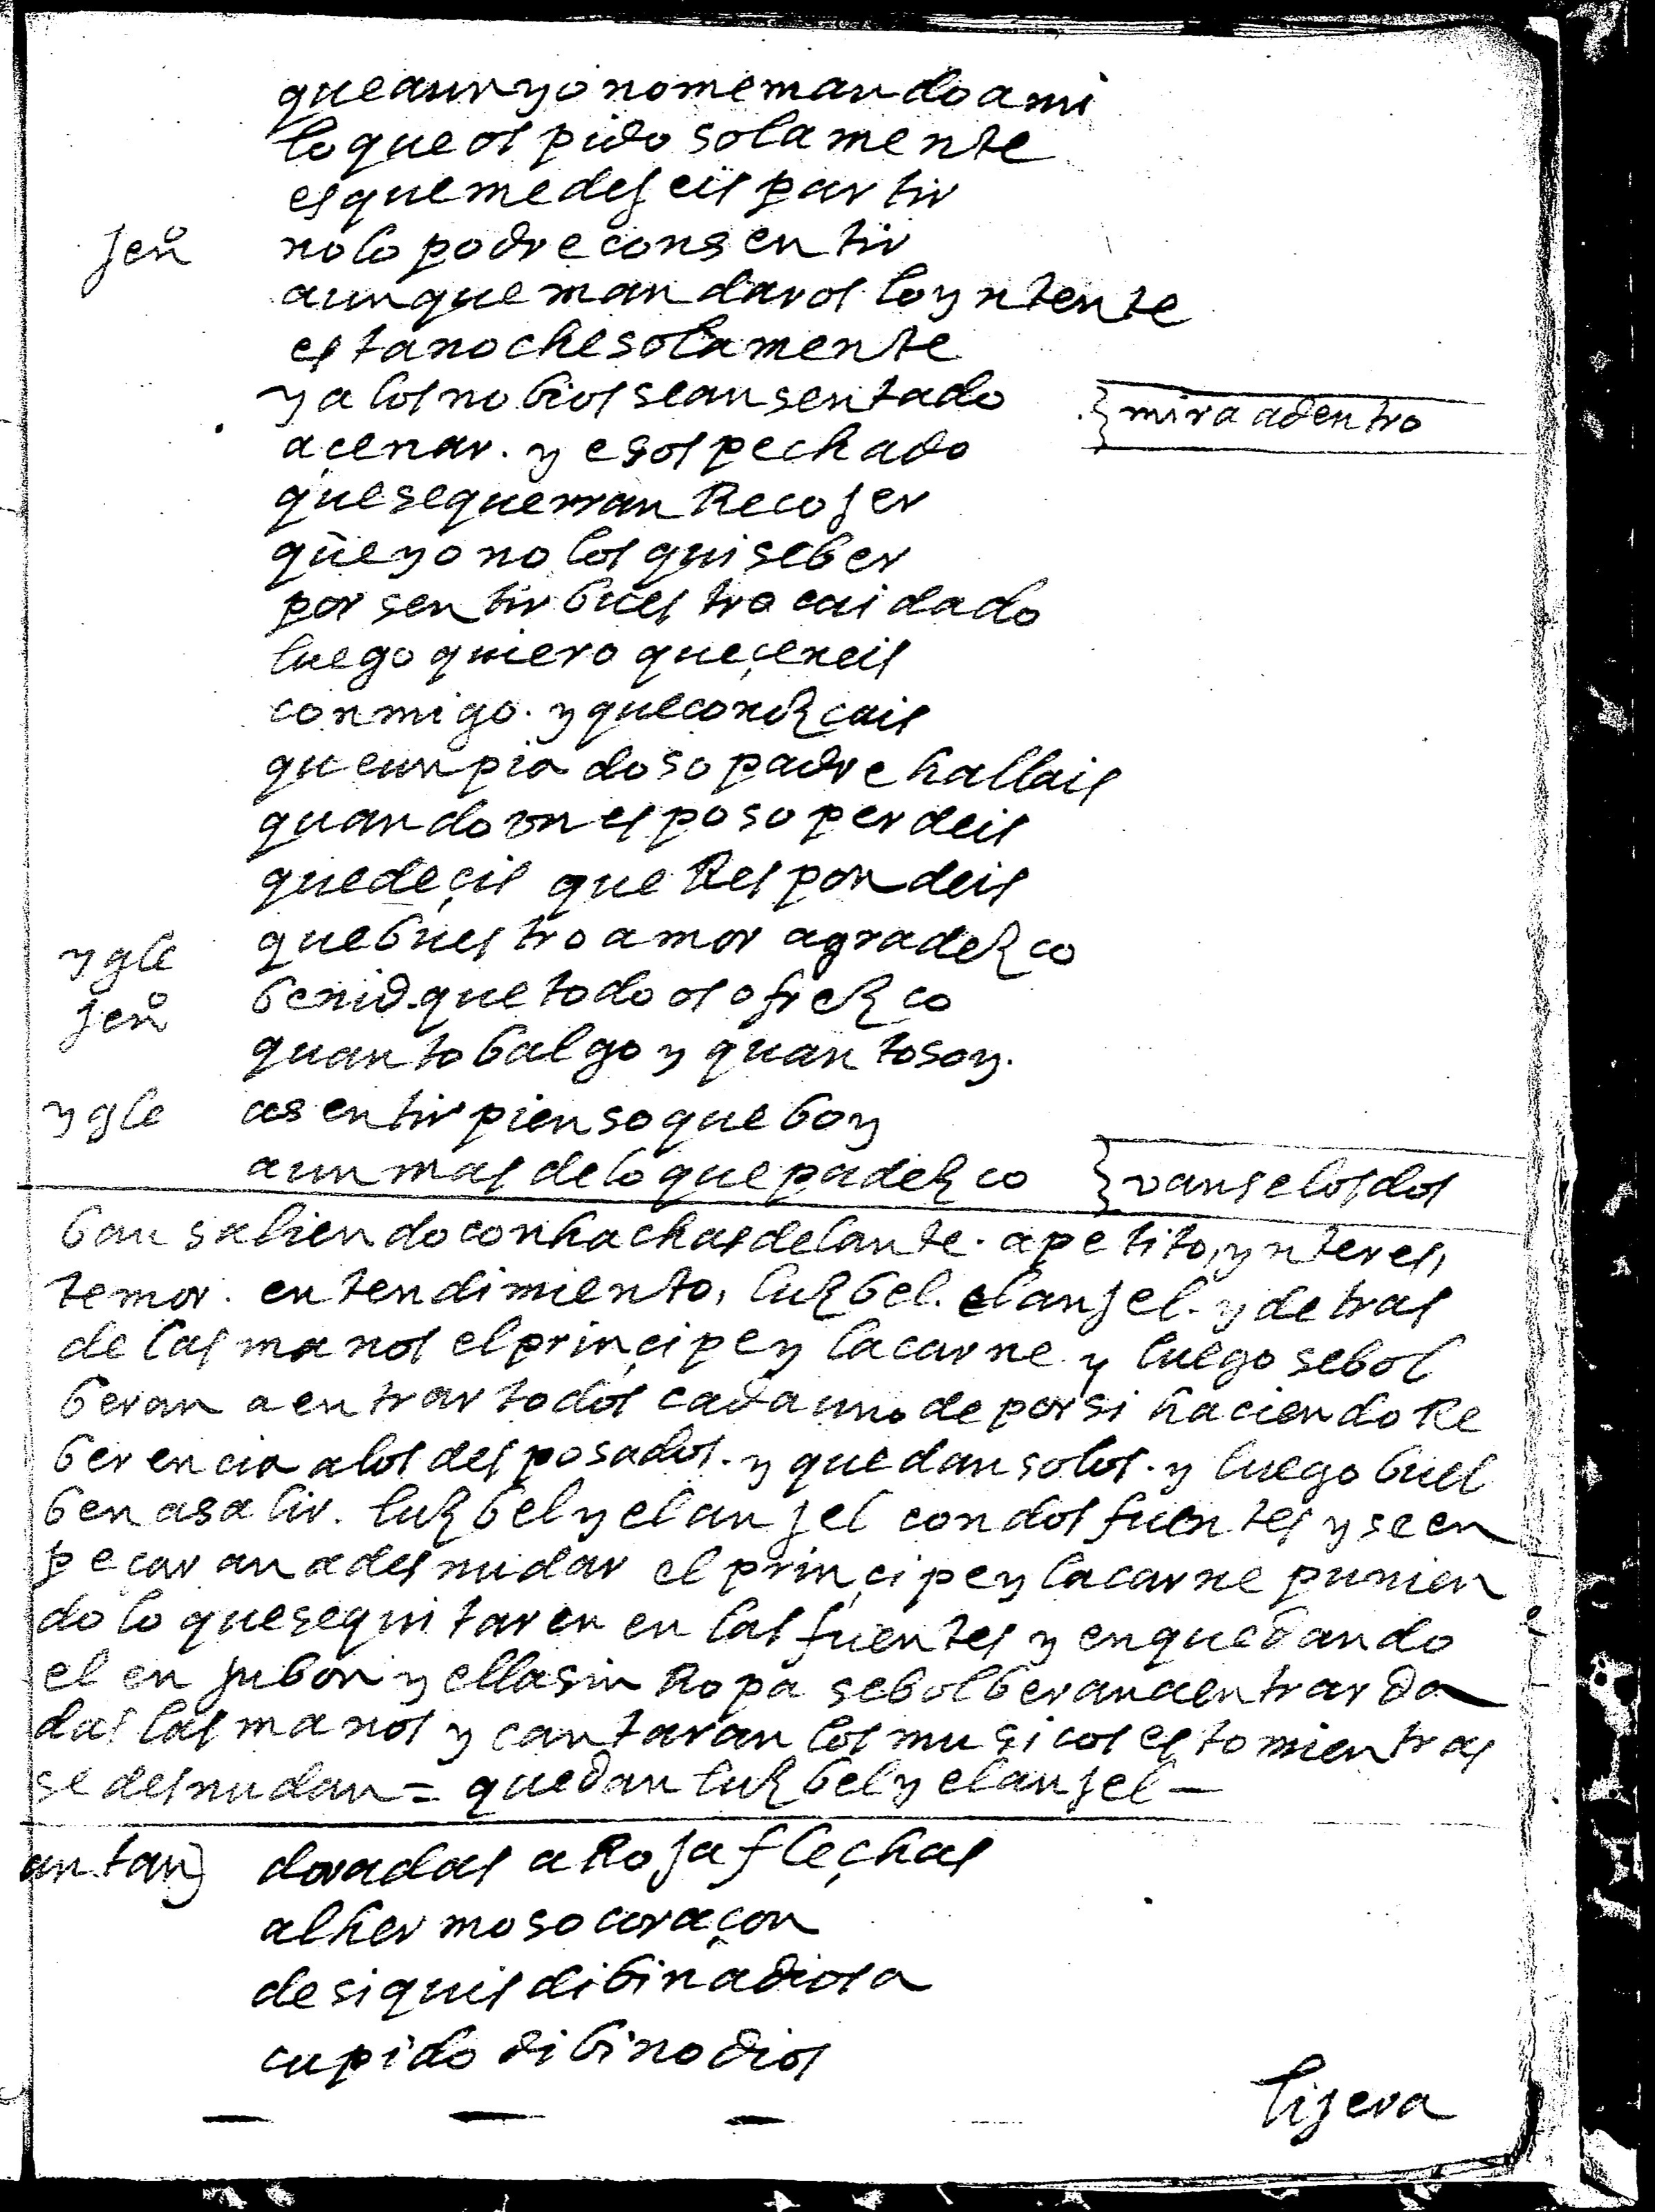 que aun yo no me mando a mi
lo que os pido solamente
es que me dejeis partir
jenº no lo podre consentir
aunque mandaros lo yntente
esta noche solamente
ya los nobios sean sentado } mira adentro
a çenar. y e sospechado
que se querran Recojer
que yo no los quise ber
por sentir buestro cuidado
luego quiero que çeneis
conmigo. y que conozcais
que un piadoso padre hallais
quando un esposo perdeis
que deçis que Respondeis
ygle que buestro amor agradezco
jenº benid. que todo os ofrezco
quanto balgo y quanto soy.
ygle a sentir pienso que boy
aun mas de lo que padezco } vanse los dos
ban saliendo con hachas delante. apetito, ynteres,
temor. entendimiento, luzbel. el anjel. y detras
de las manos el prinçipe y la carne y luego sebol
beran a entrar todos cada uno de por si haciendo Re
berencia a los desposados. y quedan solos. y luego buel
ben a salir. luzbel y el anjel con dos fuentes y se en
peçaran a desnudar el prinçipe y la carne punien
do lo que se quitaren en las fuentes y en quedando
el en jubon y ella sin Ropa se bolberan a entrar da
das las manos y cantaran los musicos esto mientras
se desnudan = quedan luzbel y el anjel —
antan} doradas a Roja fleçhas
al hermoso coraçon
de siquis dibina diosa
cupido dibino dios
lijera